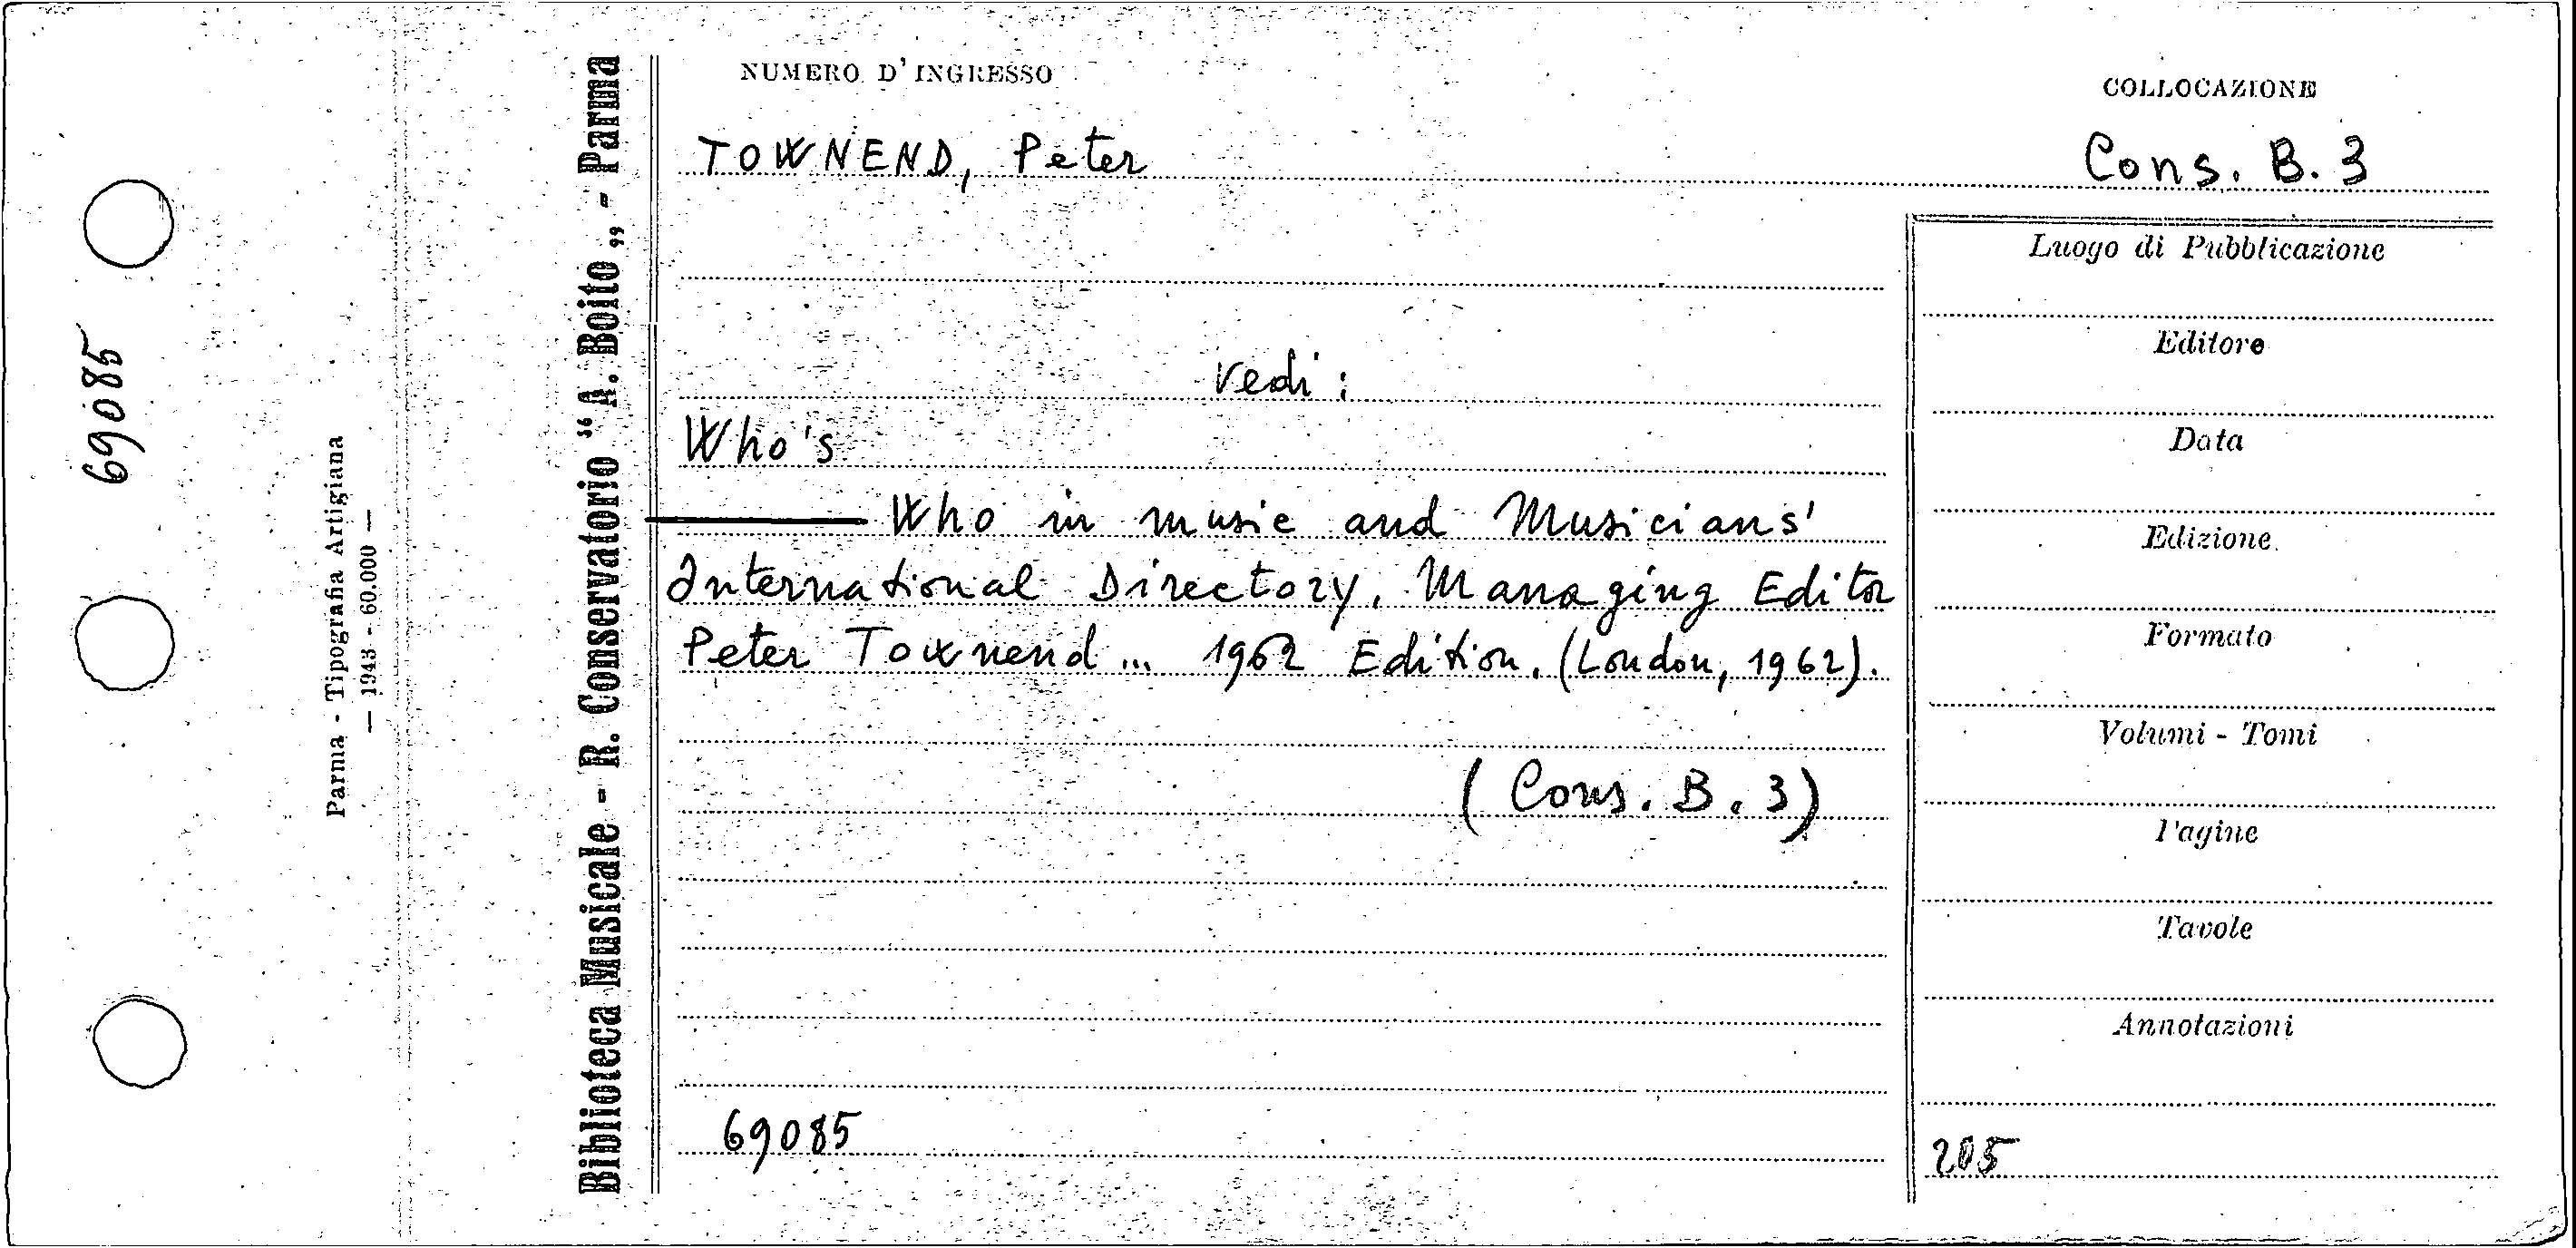 69085
Parma - Tipografia Artigiana
— 1943 - 60.000 —
Biblioteca Musicale - R. Conservatorio "A. Boito" - Parma
NUMERO D'INGRESSO
COLLOCAZIONE
TOWNEND, Peter
Cons. B. 3
vedi:
Who's
——— Who in music and Musicians'
International Directory. Managing Editor
Peter Townend ... 1962 Edition. (London, 1962).
(Cons. B. 3)
69085
Luogo di Pubblicazione
Editore
Data
Edizione
Formato
Volumi - Tomi
Pagine
Tavole
Annotazioni
205